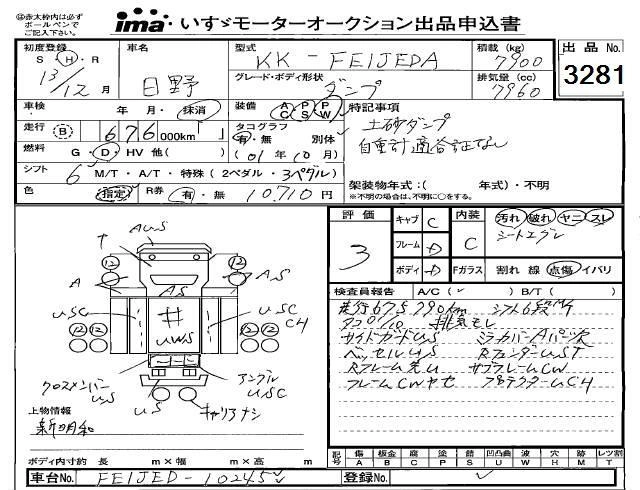 ㊟赤太枠内は必ず
ボールペンで
ご記入下さい。
ima いすゞモーターオークション出品申込書
初度登録 車名 型式 積載 (kg) 出品 No.
S ・ H ・ R KK - FEIJEDA 7900
13/12月 日野 グレード・ボディ形状 ダンプ 排気量 (cc) 7960 3281
車検 年 月・抹消 装備 AC PS PW 特記事項
走行 B 676 000km タコグラフ 有・無 別体 土砂ダンプ
燃料 G ・ D ・ HV 他( ) (01年10月) 自重計適合証なし
シフト 6 M/T ・ A/T ・ 特殊 (2ペダル ・ 3ペダル)
色 指定 R券 有・無 10,710円 架装物年式:( 年式)・不明
※不明の場合は、不明に○をする。
評価 キャブ C 内装 汚れ 破れ ヤニ スレ
3 フレーム D C シートエグレ
ボディ D Fガラス 割れ 線 点傷 イバリ
検査員報告 A/C( ✓ ) B/T( )
走行675790km シフト6段MT
タコ0/10 排気モレ
サイドガードUS ミラーカバーAパーツ欠
ベッセルUS RフェンダーUST
Rフレーム先U サブフレームCW
フレームCWヤセ プロテクターCH
AUS
T
12 12
A AS AS
USC # UWS USC CH
12 12 12 12
クロスメンバーUS アングルUSC
US キャリアナシ
上物情報
新明和
ボディ内寸約 長 m×幅 m×高 m
記号 傷 A 板金 B 腐 C 塗 P 錆 S 凹凸曲 U 波 W 穴 H 雨 M レツ割 T
車台No. FEIJED-10245 登録No.